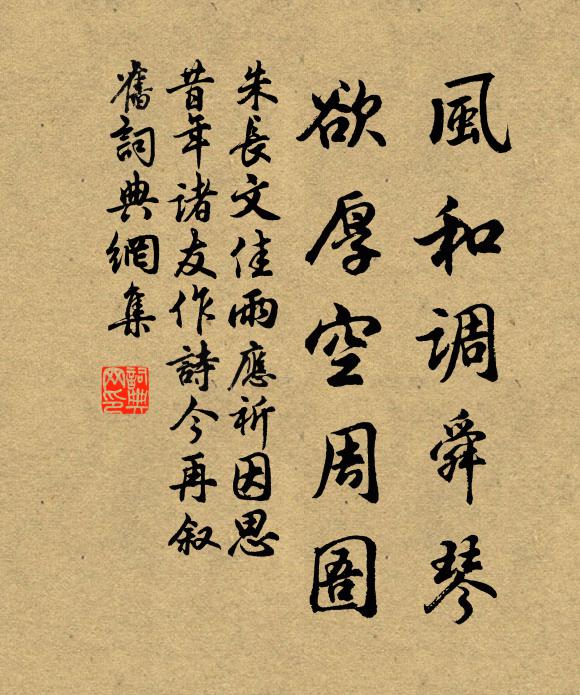 風和調舜琴
欲厚空周圄
朱長文佳雨應祈因思
昔年諸友作詩今再叙
舊詞典網集
詞典網印